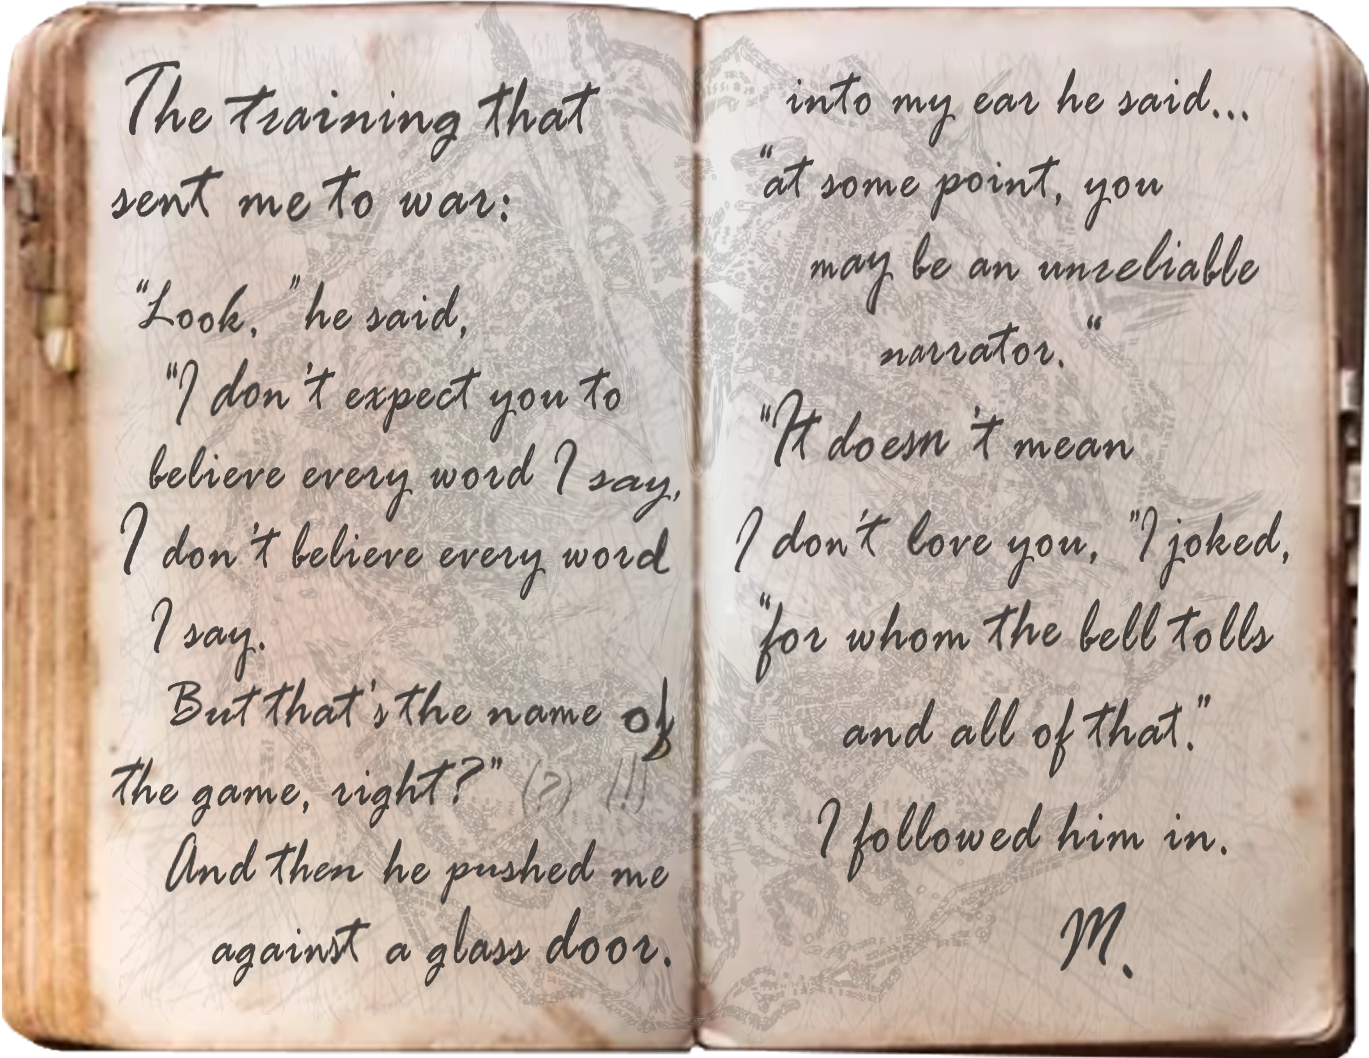 The training that
sent me to war:
“Look,” he said,
“I don't expect you to
believe every word I say,
I don't believe every word
I say.
But that's the name of
the game, right?” (?) !!)
And then he pushed me
against a glass door.
into my ear he said...
“at some point, you
may be an unreliable
narrator.“
“It doesn't mean
I don't love you,” I joked,
“for whom the bell tolls
and all of that.”
I followed him in.
M.